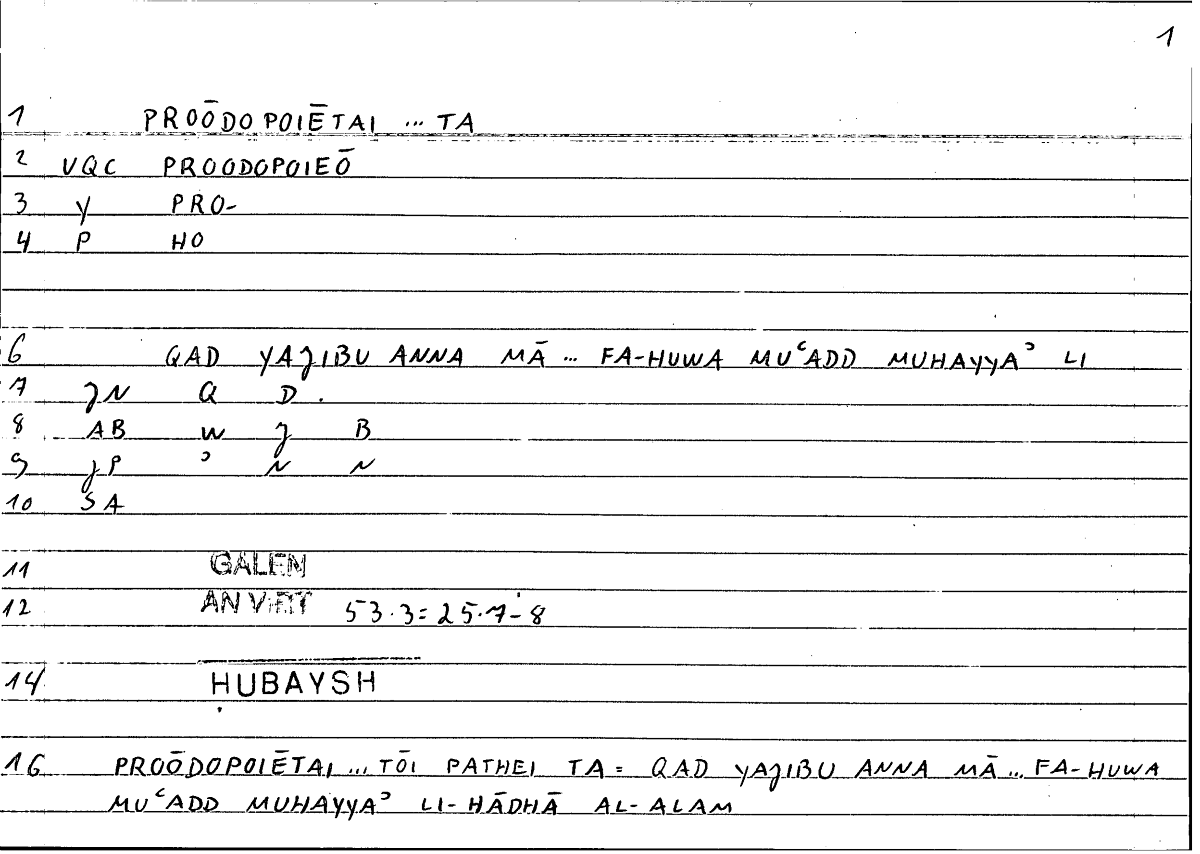 1
1 PROŌDOPOIĒTAI ... TA
2 VQC PROODOPOIEŌ
3 Y PRO-
4 P HO
6 QAD YAJIBU ANNA MĀ ... FA-HUWA MUʿADD MUHAYYAʾ LI
7 JN Q D .
8 AB W J B
9 JP ʾ N N
10 SA
11 GALEN
12 AN VIRT 53.3 = 25.7-8
14 ḤUBAYSH
16 PROŌDOPOIĒTAI ... TŌI PATHEI TA = QAD YAJIBU ANNA MĀ ... FA-HUWA
MUʿADD MUHAYYAʾ LI-HĀDHĀ AL-ALAM